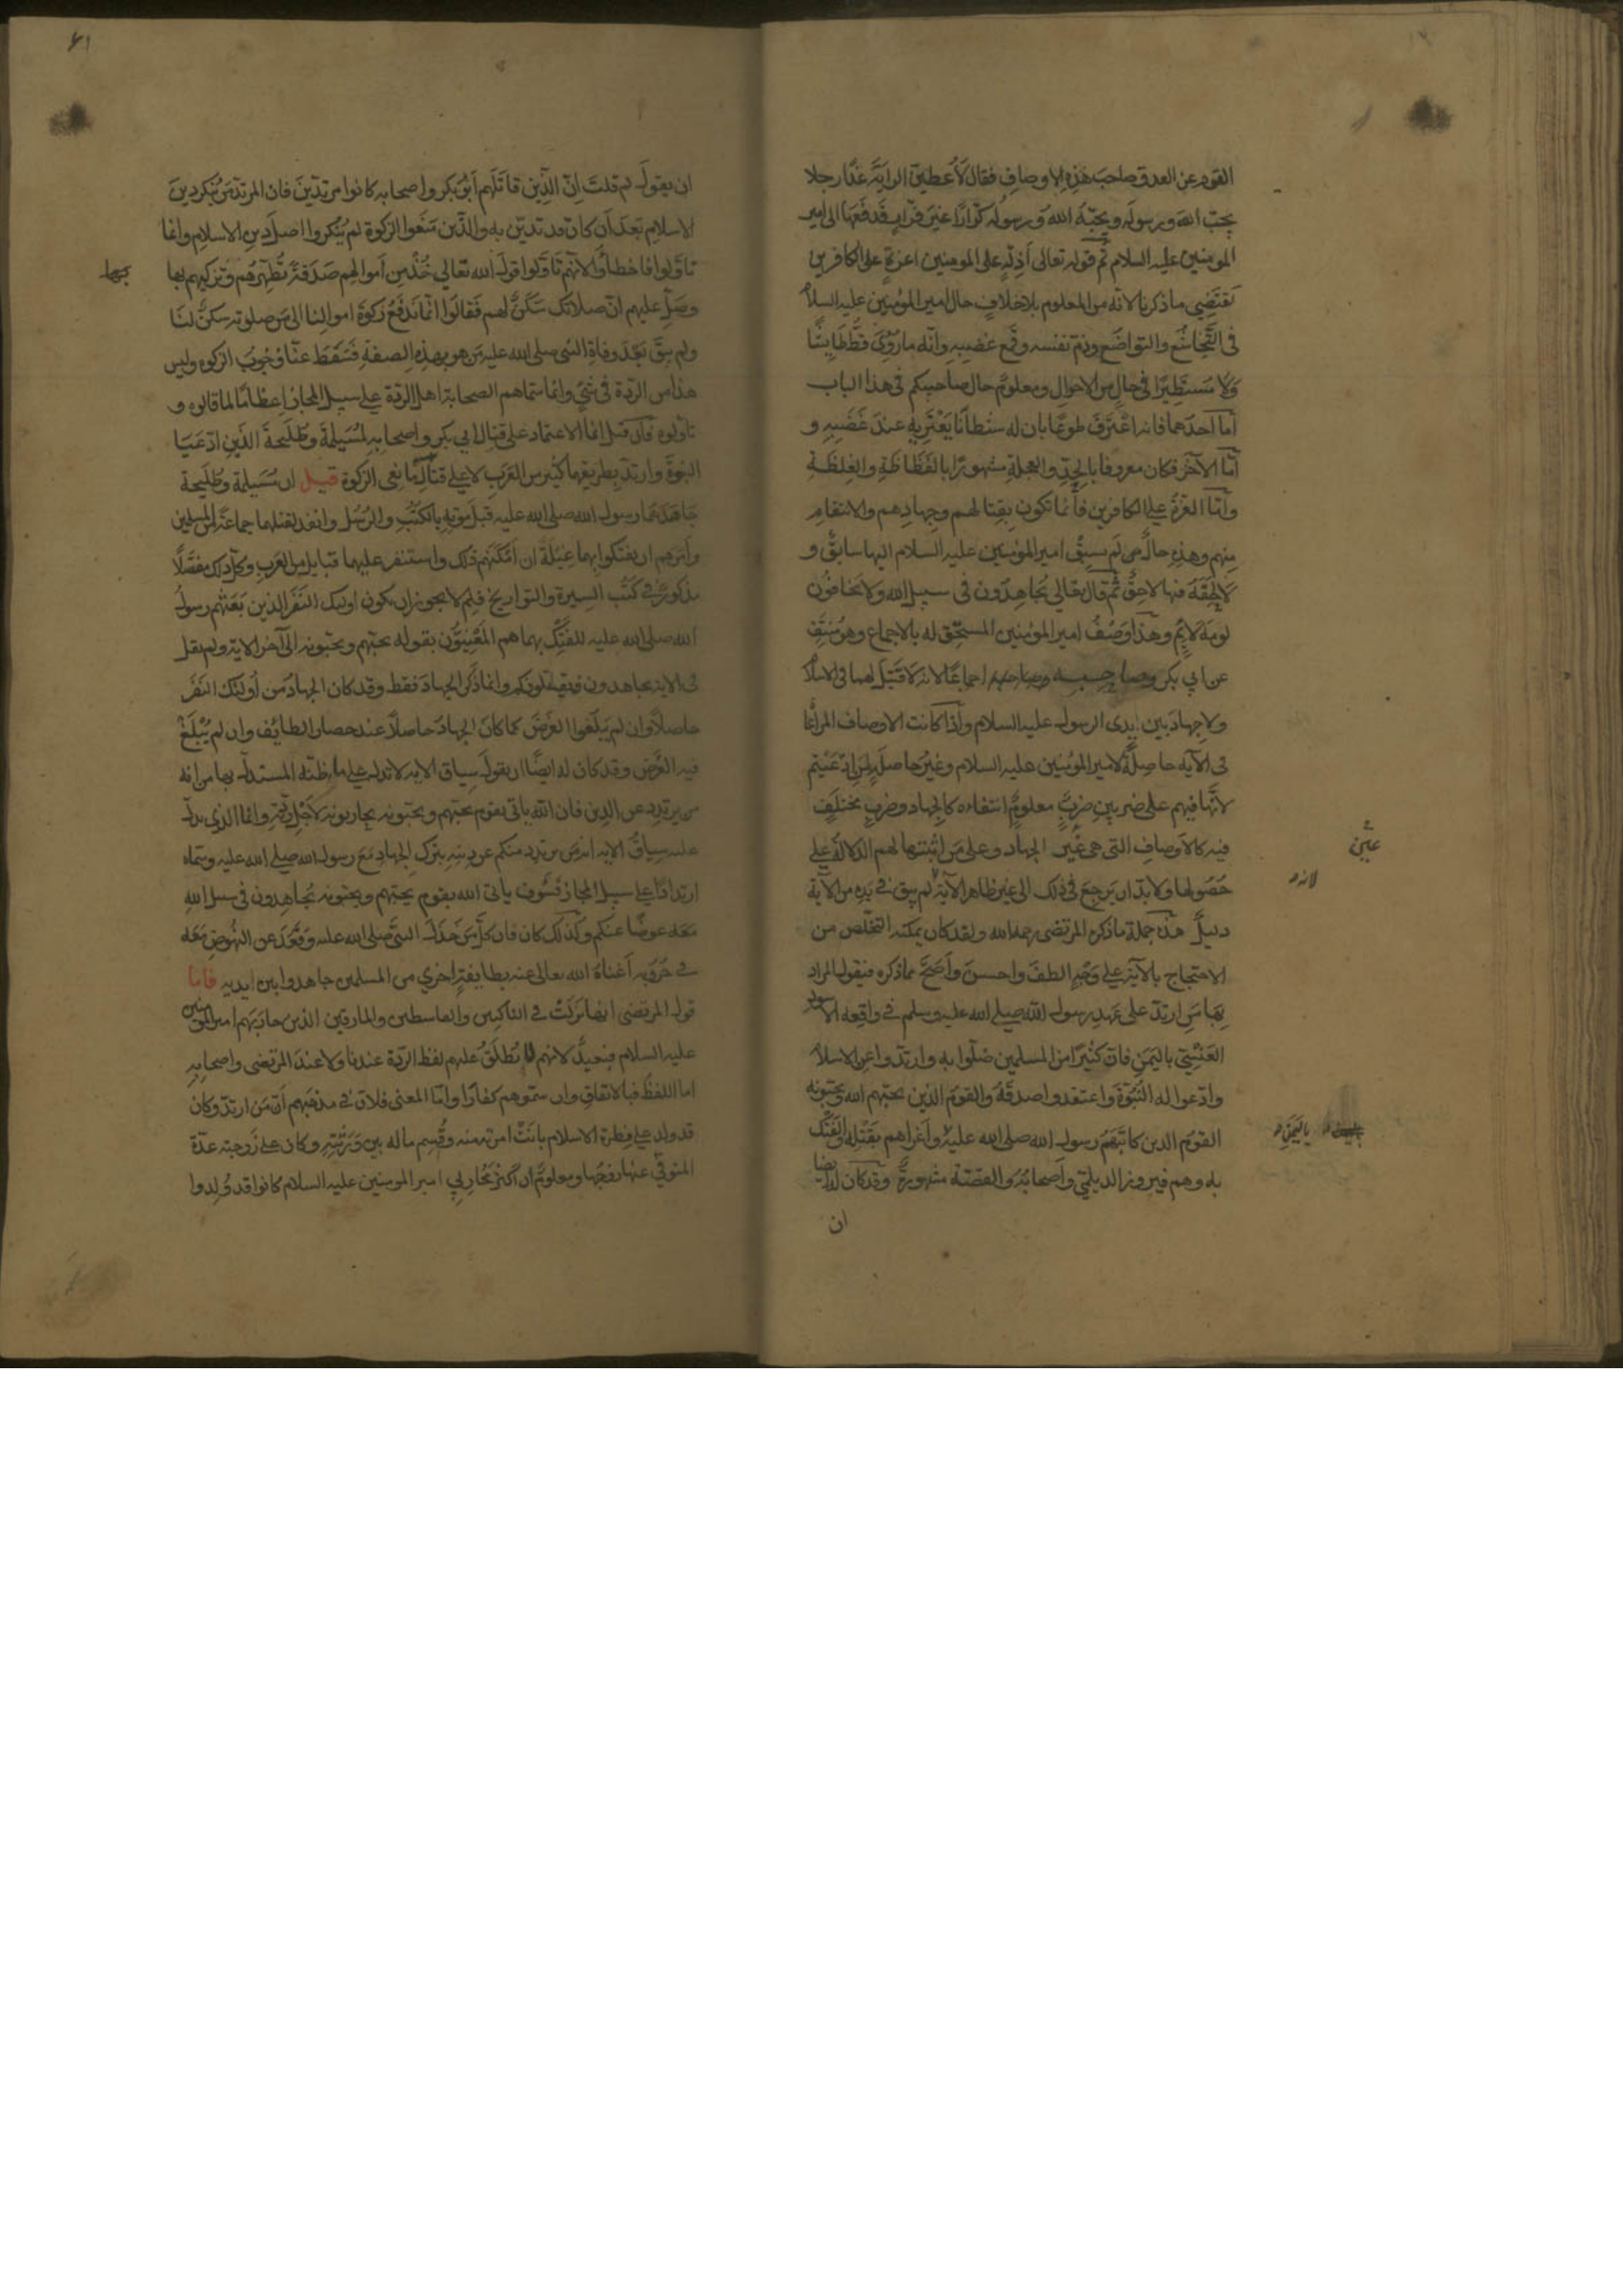 القوم عن العدو صاحب هذه الاوصاف فقال لأعطين الراية غدا رجلا
يحب الله ورسوله ويحبه الله ورسوله كرّارا غير فرّار فدفعها الى امير
المومنين عليه السلام ثم قوله تعالى أذلة على المومنين اعزة على الكافرين
تقتضي ما ذكرنا لانه من المعلوم بلا خلاف حال امير المؤمنين عليه السلام
فى التخاشع والتواضع وذم نفسه وقمع غضبه وانه ما رؤى قط طايشا
ولا مستطيرا في حال من الاحوال ومعلوم حال صاحبيكم فى هذا الباب
اما احدهما فانه اعترف طوعا بان له شيطانا يعتريه عند غضبه و
امّا الآخر فكان معروفا بالجد والعجلة مشهورا بالفظاظة والغلظة
وامّا العزة على الكافرين فانما تكون بقتالهم وجهادهم والانتقام
منهم وهذه حال لم يسبق امير المؤمنين عليه السلام اليها سابق و
لا لحقه فيها لاحق ثم قال تعالى يجاهدون فى سبيل الله ولا يخافون
لومة لائم وهذا وصف امير المؤمنين المستحق له بالاجماع وهو منتف
عن ابي بكر وصاحبه اجماعا لانه لا قتيل لهما فى الاسلام
ولا جهاد بين ايدى الرسول عليه السلام واذا كانت الاوصاف المراعا
فى الآية حاصلة لامير المؤمنين عليه السلام وغير حاصلة لمن ادعيتم
لانها فيهم على ضربين ضرب معلوم انتفاءه كالجهاد وضرب مختلف
فيه كالاوصاف التى هى غير الجهاد وعلى من اثبتها لهم الدلالة على
حصولها ولا بد ان يرجع فى ذلك الى غير ظاهر الآية لم يبق في يده من الآية
دليل هذه جملة ما ذكره المرتضى رحمه الله ولقد كان يمكنه التخلص من
الاحتجاج بالآية على وجه الطف واحسن وأصح مما ذكره فنقول المراد
بها من ارتد على عهد رسول الله صلى الله عليه وسلم في واقعة الاسود
العنسي باليمن فان كثيرا من المسلمين ضلّوا به وارتدوا عن الاسلام
وادعوا له النبوة واعتقدوا صدقه والقوم الذين يحبهم الله ويحبونه
القوم الذين كاتبهم رسول الله صلى الله عليه واغراهم بقتله والفتك
به وهم فيروز الديلمي واصحابه والقصة مشهورة وقد كان له ايضا
ان
لانه
باليمن
٤١
ان يقول لم قلت انّ الذين قاتلهم ابو بكر واصحابه كانوا مرتدين فان المرتد من ينكر دين
الاسلام بعد ان كان قد تدين به والذين منعوا الزكوة لم ينكروا اصل دين الاسلام وانما
تأولوا فاخطأوا لانهم تأولوا قول الله تعالي خذ من اموالهم صدقة تطهرهم وتزكيهم بها
وصلّ عليهم انّ صلاتك سكن لهم فقالوا انما ندفع زكوة اموالنا الى من صلوته سكن لنا
ولم يبق بعد وفاة النبى صلى الله عليه من هو بهذه الصفة فسقط عنا وجوب الزكوة وليس
هذا من الردة فى شئ وانما سماهم الصحابة اهل الردة على سبيل المجاز اعظاما لما قالوه و
تاولوه فان قيل انما الاعتماد على قتال ابي بكر واصحابه لمسيلمة وطليحة الذين ادعيا
النبوة وارتد بطريقهما كثير من العرب لا على قتال مانعى الزكوة قيل ان مسيلمة وطليحة
جاهدهما رسول الله صلى الله عليه قبل موته بالكتب والرسل وانفذ لقتلهما جماعة من المسلمين
وامرهم ان يفتكوا بهما غيلة ان امكنهم ذلك واستنفر عليهما قبايل من العرب وكل ذلك مفصلا
مذكور في كتب السيرة والتواريخ فلم لا يجوز ان يكون اوليك النفر الذين بعثهم رسول
الله صلى الله عليه للفتك بهما هم المعنيون بقوله يحبهم ويحبونه الى آخر الاية ولم يقل
فى الاية يجاهدون فيقتلون وانما ذكر الجهاد فقط وقد كان الجهاد من اوليك النفر
حاصلا وان لم يبلغوا الغرض كما كان الجهاد حاصلا عند حصار الطائف وان لم يبلغ
فيه الغرض وقد كان له ايضا ان يقول سياق الاية لا تدل على ما ظنه المستدل بها من انه
من يرتدد عن الدين فان الله ياتى بقوم يحبهم ويحبونه يحاربونه لاجل ردته وانما الذى يدل
عليه سياق الاية انه من يرتد منكم عن دينه بترك الجهاد مع رسول الله صلى الله عليه وسماه
ارتدادا على سبيل المجاز فسوف ياتى الله بقوم يحبهم ويحبونه يجاهدون فى سبيل الله
معه عوضا عنكم وكذلك كان فان كل من خذل النبى صلى الله عليه وقعد عن النهوض معه
في حربه اغناه الله تعالى عنه بطايفة اخرى من المسلمين جاهدوا بين ايديه فاما
قول المرتضى انها نزلت في الناكثين والقاسطين والمارقين الذين حاربهم امير المؤمنين
عليه السلام فبعيد لانهم لا يطلق عليهم لفظ الردة عندنا ولا عند المرتضى واصحابه
اما اللفظ فبالاتفاق وان سموهم كفارا وامّا المعنى فلان في مذهبهم أن من ارتد وكان
قد ولد على فطرة الاسلام بانت امرته منه وقسم ماله بين ورثته وكان على زوجته عدة
المتوفي عنها زوجها ومعلوم ان اكثر محاربي امير المومنين عليه السلام كانوا قد ولدوا